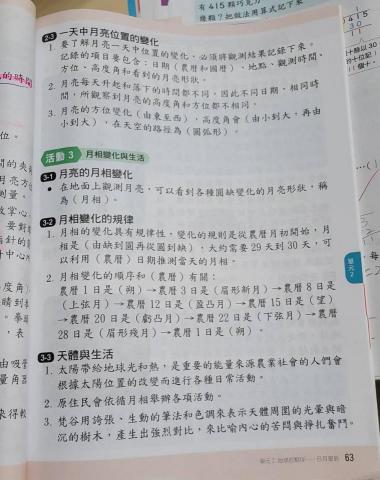 有 415 顆巧克力
幾顆？把做法用算式記下來
2-3 一天中月亮位置的變化
1. 要了解月亮一天中位置的變化，必須將觀測結果記錄下來。
記錄的項目要包含：日期（農曆和國曆）、地點、觀測時間、
方位、高度角和看到的月亮形狀。
2. 月亮每天升起和落下的時間都不同，因此不同日期、相同時
間，所觀察到月亮的高度角和方位都不相同。
3. 月亮的方位變化（由東至西），高度角會（由小到大，再由
小到大），在天空的路徑為（圓弧形）。
活動 3 月相變化與生活
3-1 月亮的月相變化
● 在地面上觀測月亮，可以看到各種圓缺變化的月亮形狀，稱
為（月相）。
3-2 月相變化的規律
1. 月相的變化具有規律性，變化的規則是從農曆月初開始，月
相是（由缺到圓再從圓到缺），大約需要 29 天到 30 天，可
以利用（農曆）日期推測當天的月相。
2. 月相變化的順序和（農曆）有關：
農曆 1 日是（朔）→農曆 3 日是（眉形新月）→農曆 8 日是
（上弦月）→農曆 12 日是（盈凸月）→農曆 15 日是（望）
→農曆 20 日是（虧凸月）→農曆 22 日是（下弦月）→農曆
28 日是（眉形殘月）→農曆 1 日是（朔）。
3-3 天體與生活
1. 太陽帶給地球光和熱，是重要的能量來源農業社會的人們會
根據太陽位置的改變而進行各種日常活動。
2. 原住民會依循月相舉辦各項活動。
3. 梵谷用誇張、生動的筆法和色調來表示天體周圍的光暈與暗
沉的樹木，產生出強烈對比，來比喻內心的苦悶與掙扎奮鬥。
單元 2
63